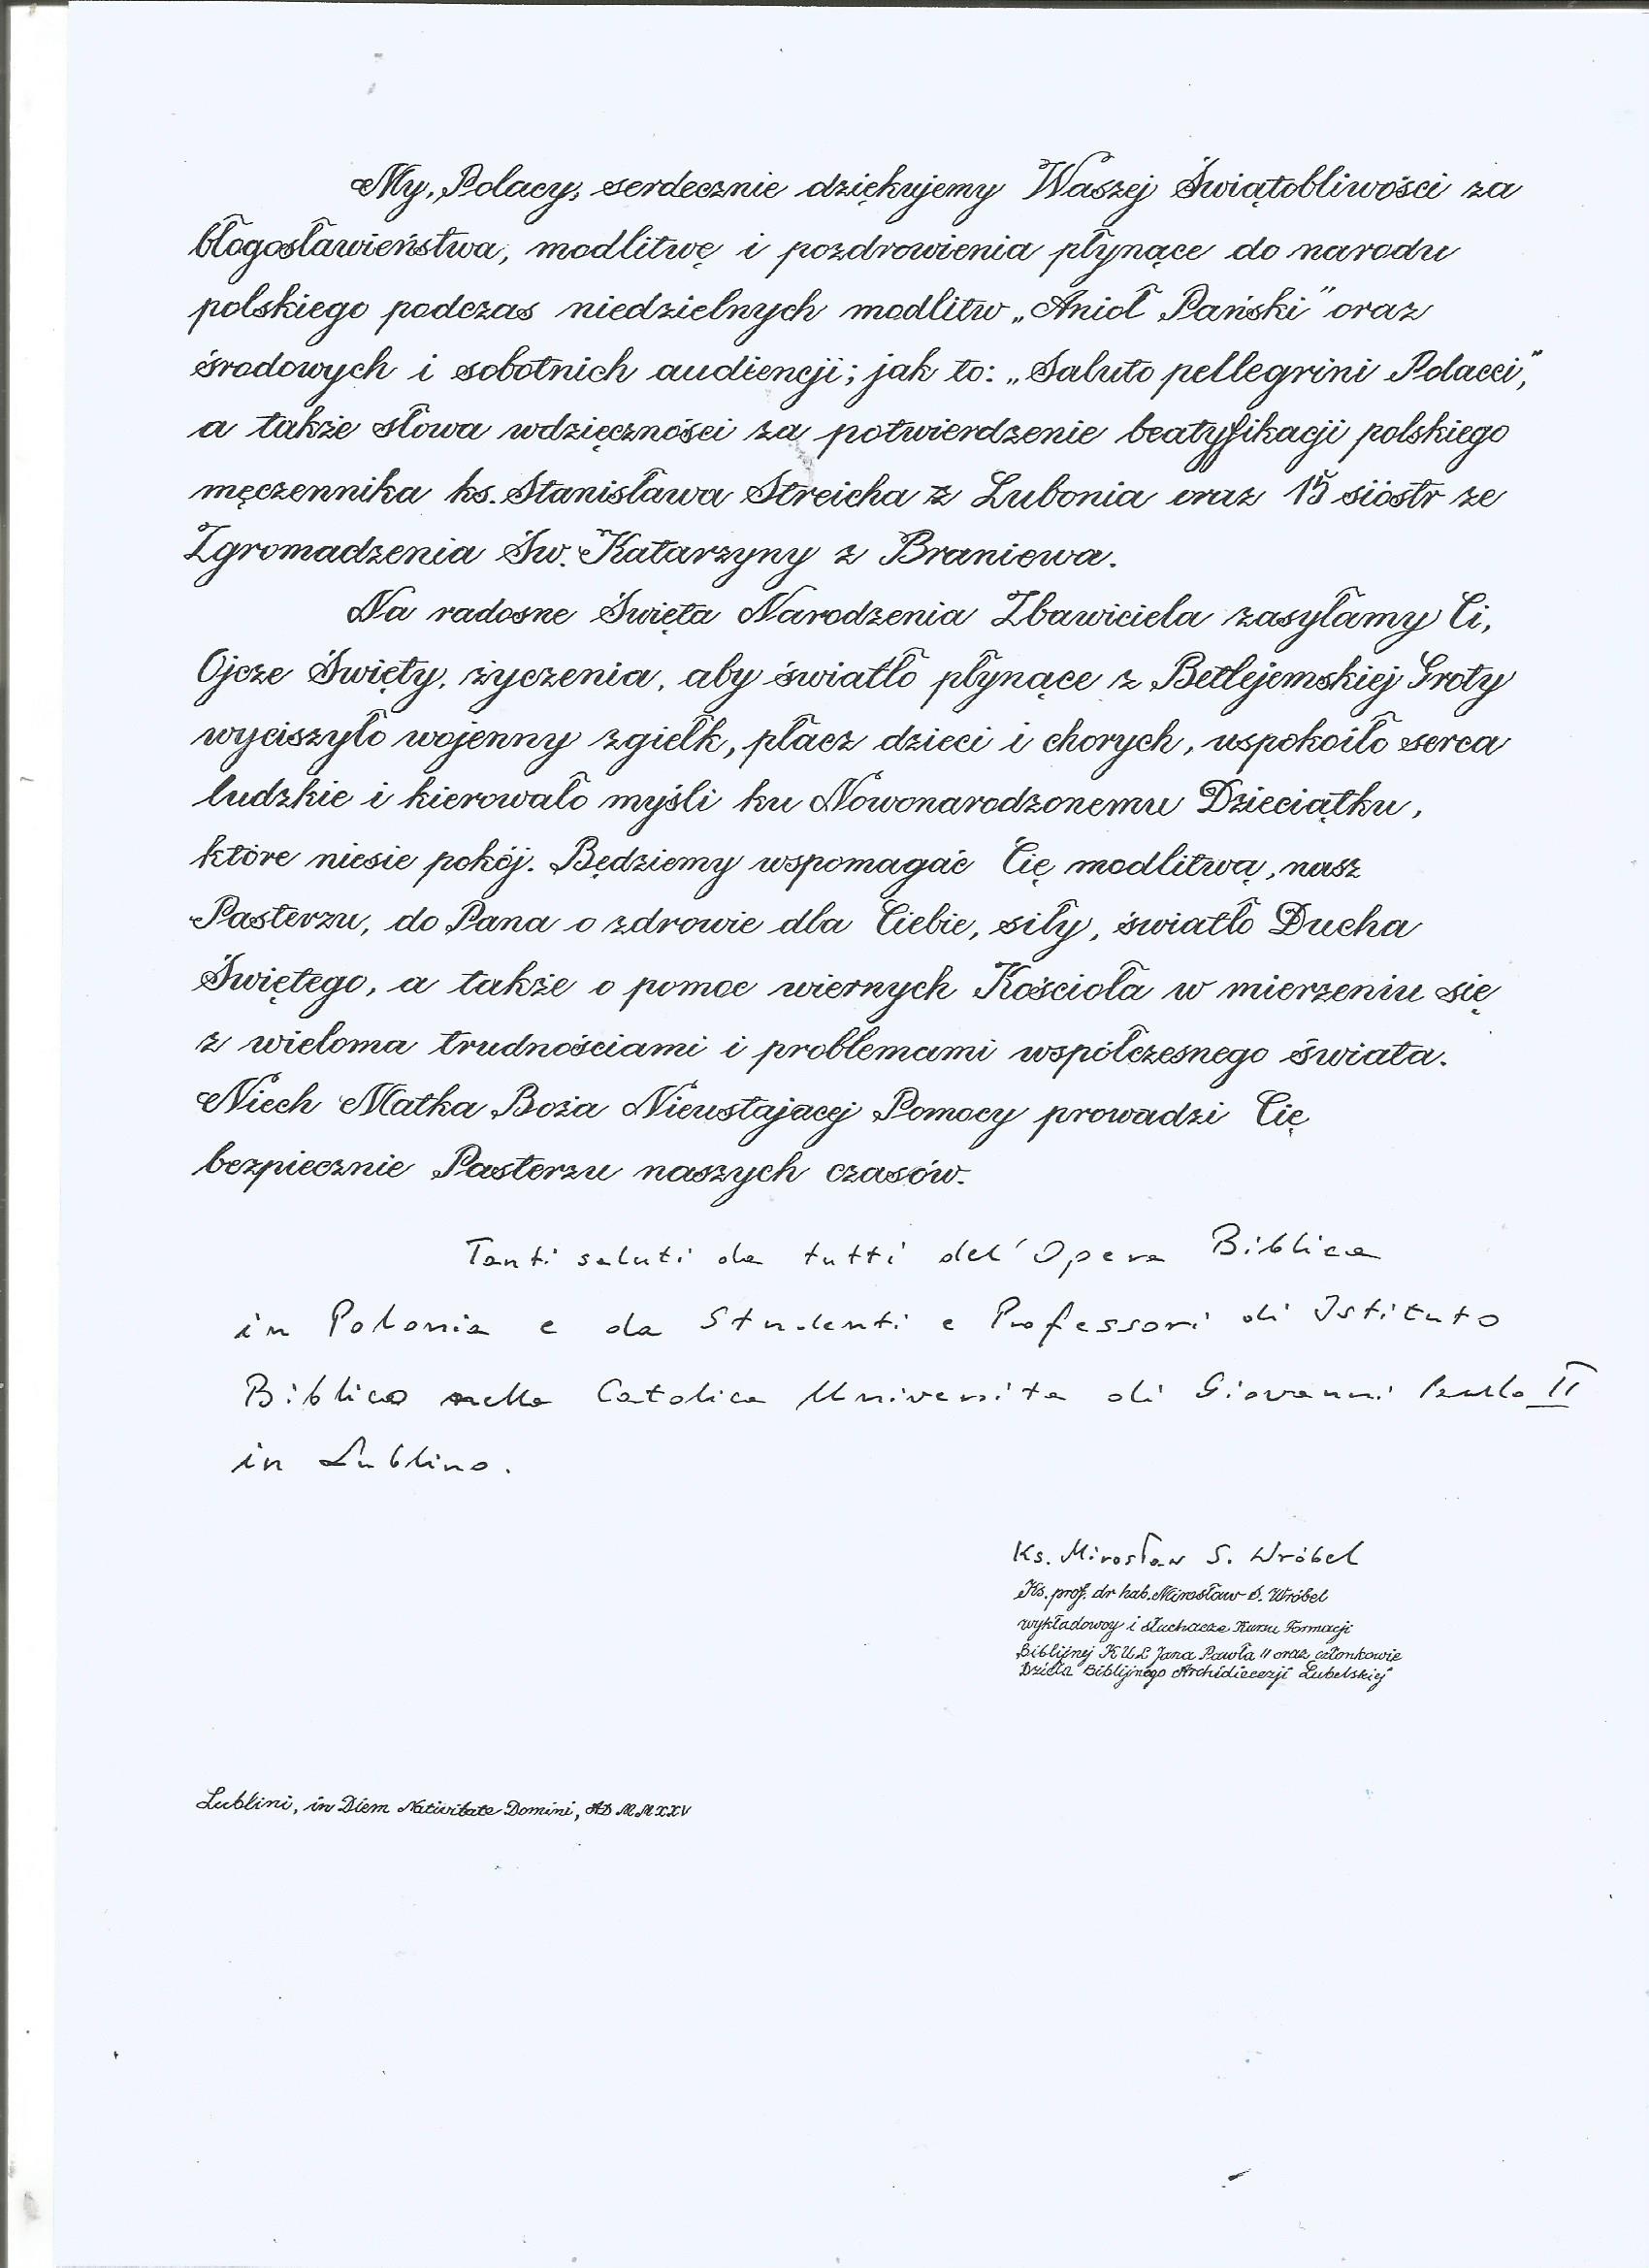 My, Polacy, serdecznie dziękujemy Waszej Świątobliwości za
błogosławieństwa, modlitwę i pozdrowienia płynące do narodu
polskiego podczas niedzielnych modlitw „Anioł Pański" oraz
środowych i sobotnich audiencji; jak to: „Saluto pellegrini Polacci",
a także słowa wdzięczności za potwierdzenie beatyfikacji polskiego
męczennika ks. Stanisława Streicha z Lubonia oraz 15 sióstr ze
Zgromadzenia Św. Katarzyny z Braniewa.
Na radosne Święta Narodzenia Zbawiciela zasyłamy Ci,
Ojcze Święty, życzenia, aby światło płynące z Betlejemskiej Groty
wyciszyło wojenny zgiełk, płacz dzieci i chorych, uspokoiło serca
ludzkie i kierowało myśli ku Nowonarodzonemu Dzieciątku,
które niesie pokój. Będziemy wspomagać Cię modlitwą, nasz
Pasterzu, do Pana o zdrowie dla Ciebie, siły, światło Ducha
Świętego, a także o pomoc wiernych Kościoła w mierzeniu się
z wieloma trudnościami i problemami współczesnego świata.
Niech Matka Boża Nieustajacej Pomocy prowadzi Cię
bezpiecznie Pasterzu naszych czasów.
Tanti saluti da tutti del' Opera Biblica
in Polonia e da Studenti e Professori di Istituto
Biblico nella Catolica Universita di Giovanni Paulo II
in Lublino.
Ks. Mirosław S. Wróbel
Ks. prof. dr hab. Mirosław S. Wróbel
wykładowcy i słuchacze Kursu Formacji
Biblijnej KUL Jana Pawła II oraz członkowie
Dzieła Biblijnego Archidiecezji Lubelskiej
Lublini, in Diem Nativitate Domini, AD MMXXV